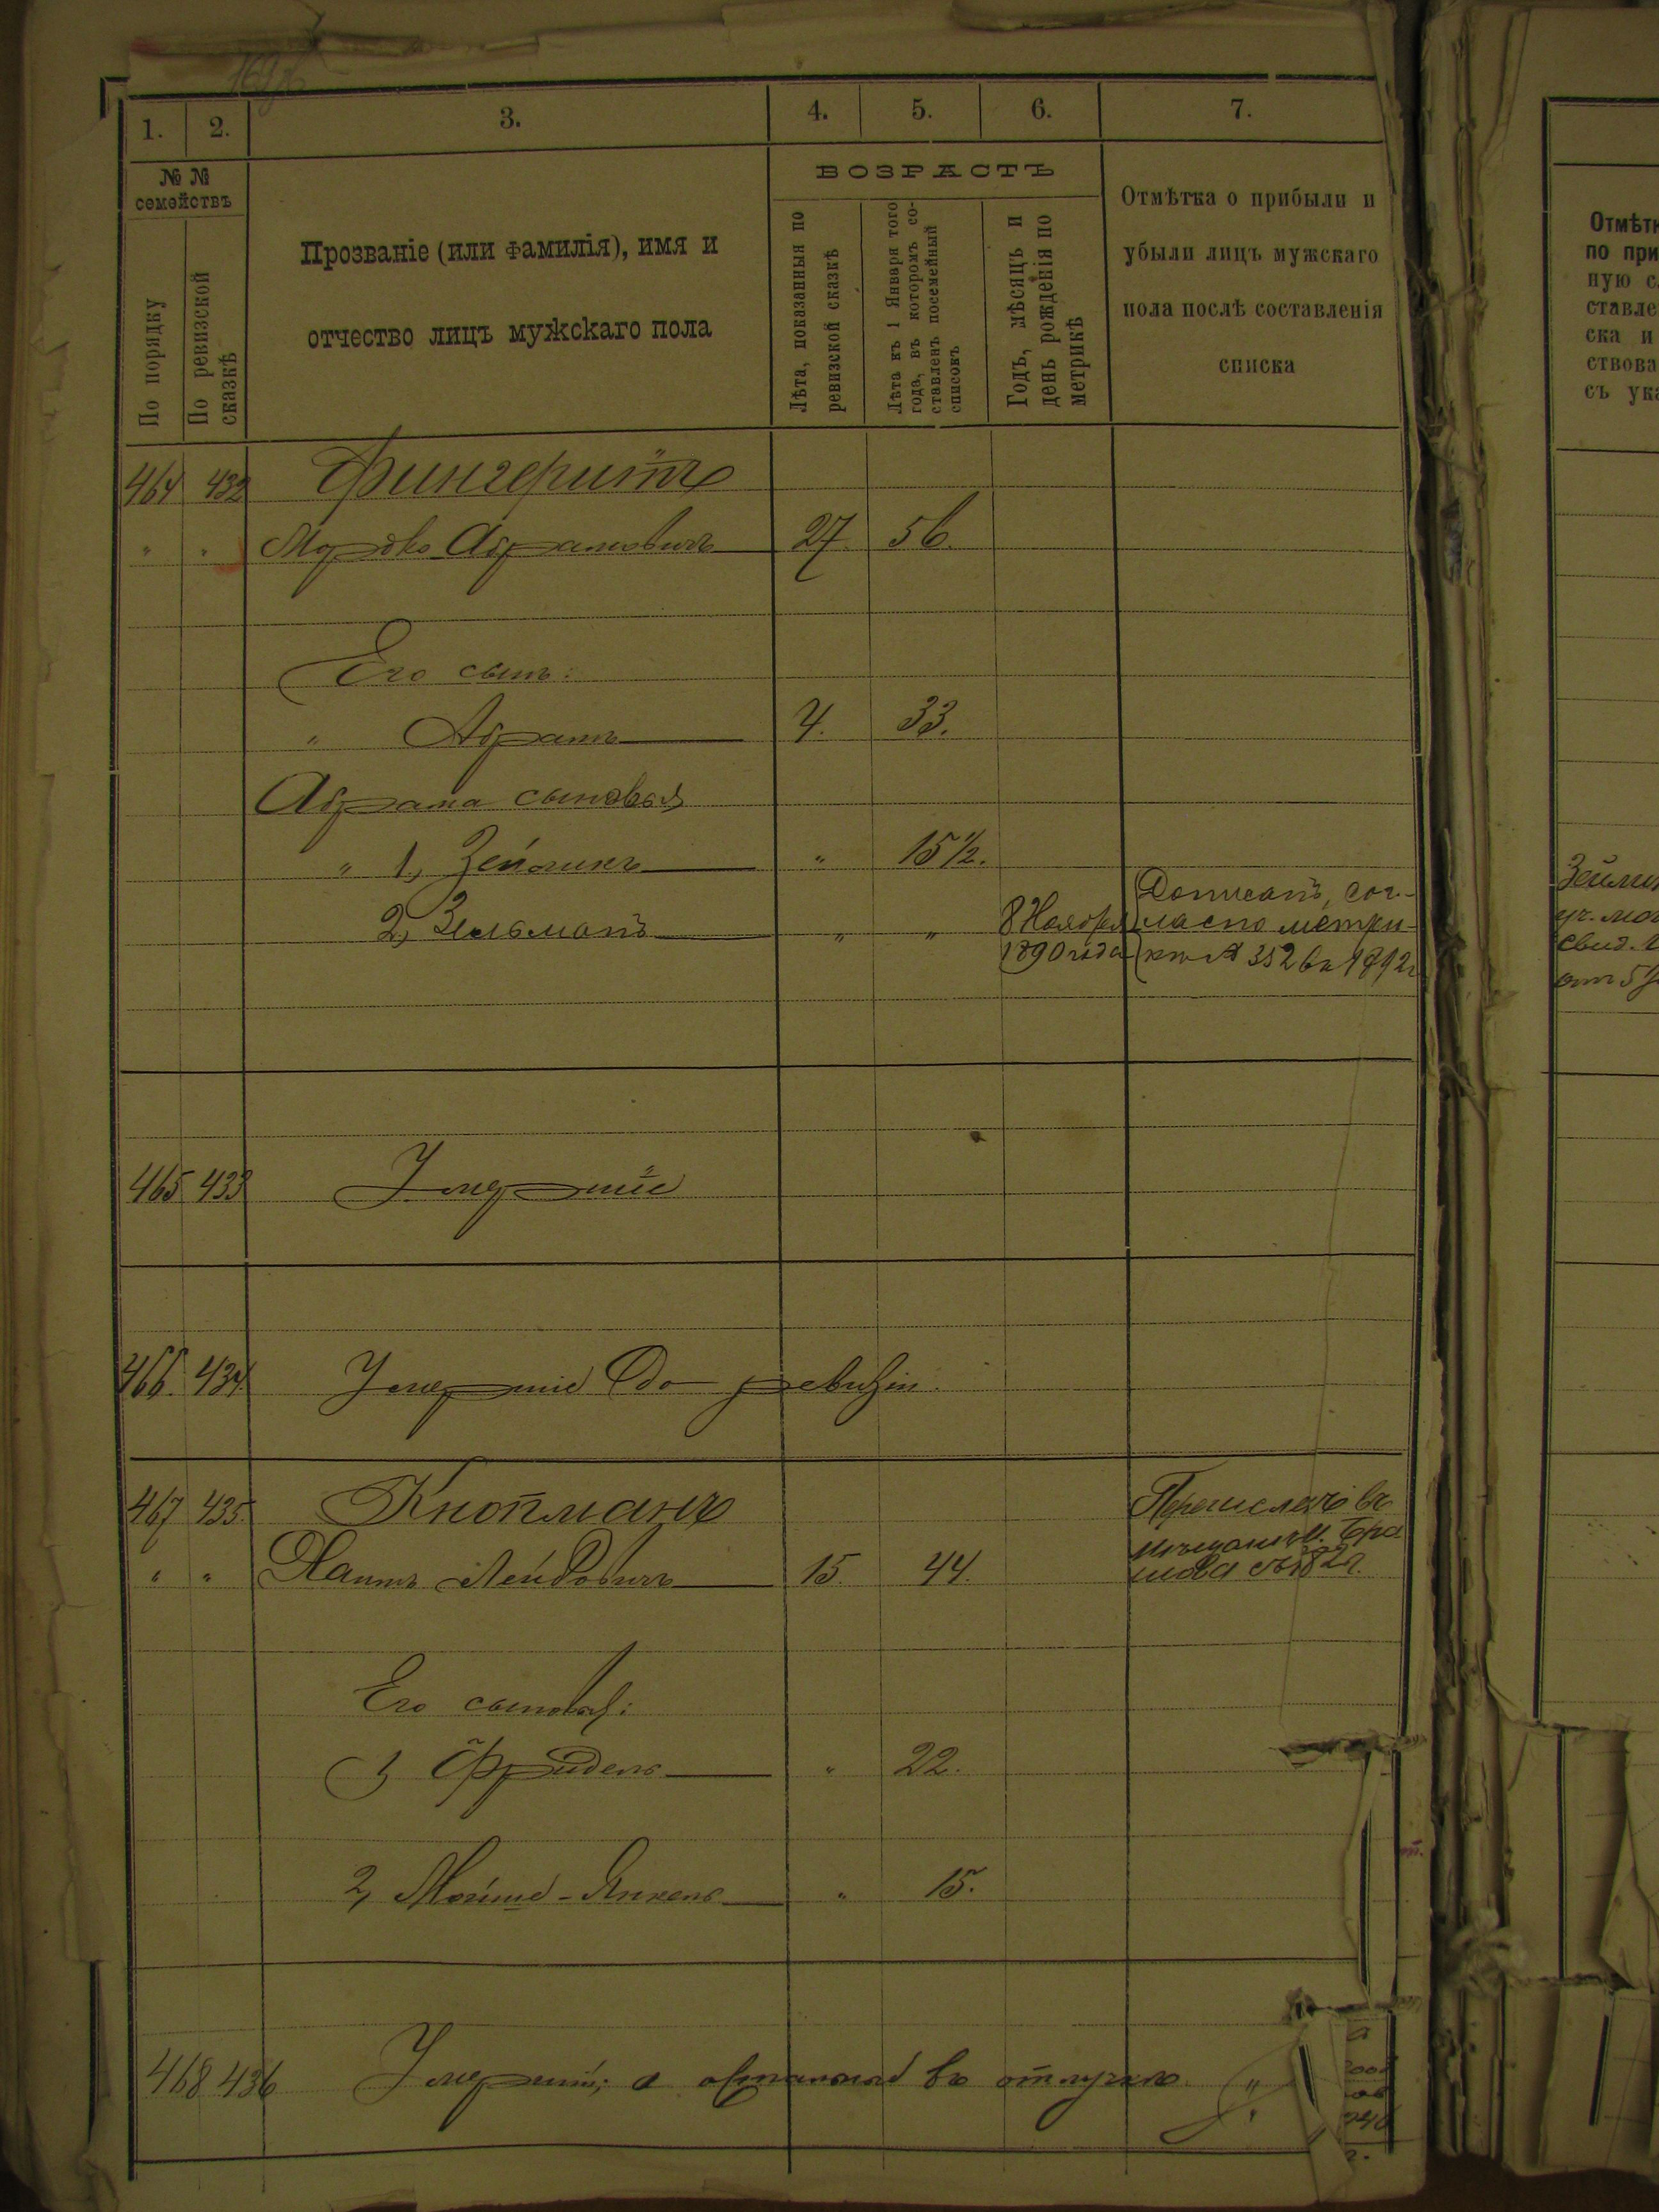 1. 2. 3. 4. 5. 6. 7.
№ №
семействъ
По порядку
По ревизской
сказкѣ
Прозваніе (или фамилія), имя и
отчество лицъ мужскаго пола
ВОЗРАСТЪ
Лѣта, показанныя по
ревизской сказкѣ
Лѣта къ 1 Января того
года, въ которомъ со-
ставленъ посемейный
списокъ
Годъ, мѣсяцъ и
день рожденія по
метрикѣ
Отмѣтка о прибыли и
убыли лицъ мужскаго
пола послѣ составленія
списка
464 432 Фингеритъ
" " Мордко Абрамовичъ 27. 56.
Его сынъ:
" Абрамъ 4. 33.
Абрама сыновья
" 1, Зейликъ " 15 1/2.
2, Зельманъ " " 8 Ноября 1890 года
Дописанъ, сог-
ласно метри-
кѣ № 352 въ 1892 г
465 433 Умершіе
466. 434. Умершіе до ревизіи.
467 435. Кнопманъ
" " Хаимъ Лейбовичъ 15. 44.
Перечисленъ въ
мѣщане м. Бра
шова съ 1882 г.
Его сыновья:
1, Фридель " 22.
2, Мойше-Янкель " 15.
468 436 Умершій, а остальные въ отлучкѣ.
Отмѣтк
по при
ную с
ставле
ска и
ствова
съ ука
Зейли
свид.
от 5